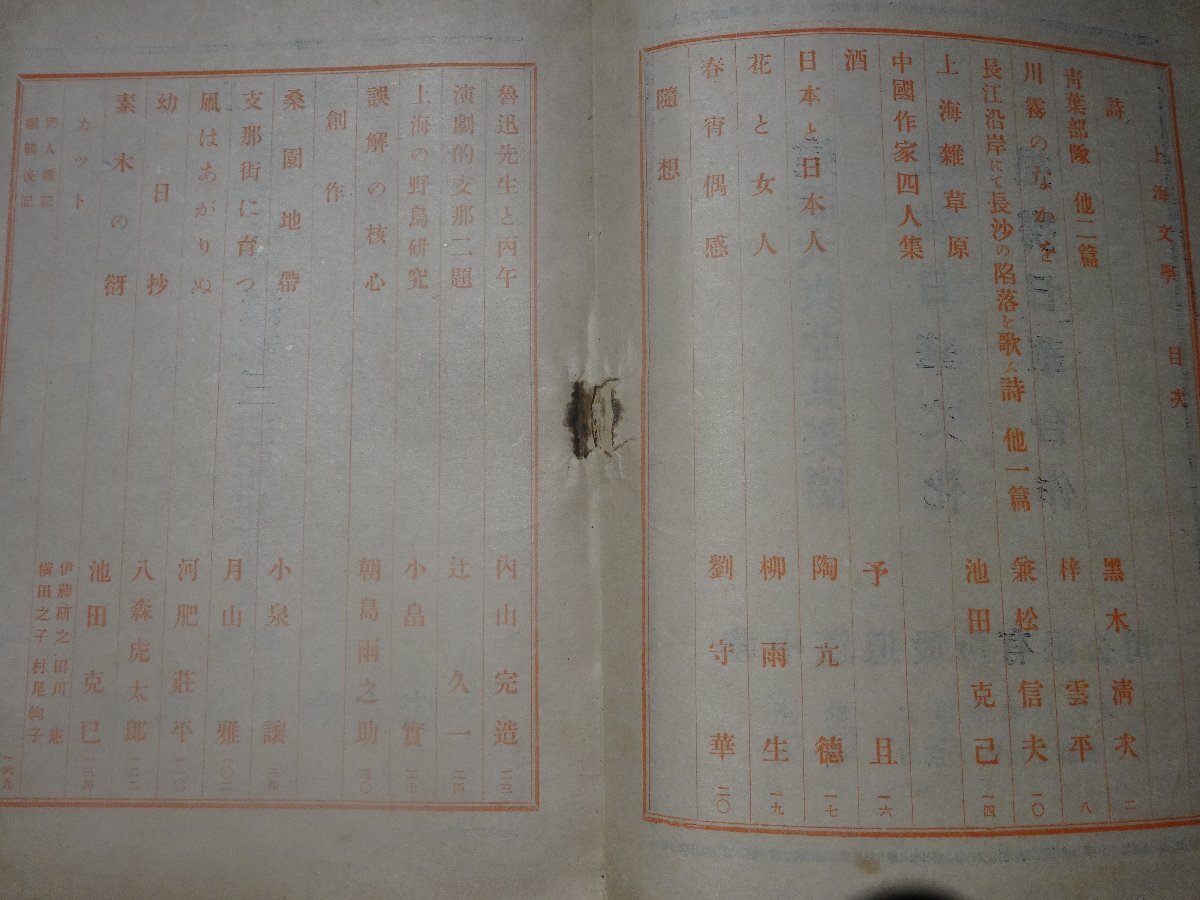 上海文學 目次
詩
靑葉部隊 他二篇 黑木淸次 二
川霧のなかを 梓雲平 八
長江沿岸にて長沙の陷落を歌ふ詩 他一篇 兼松信夫 一〇
上海雜草原 池田克己 一四
中國作家四人集
酒 予且 一六
日本と日本人 陶亢德 一七
花と女人 柳雨生 一九
春宵偶感 劉守華 二〇
隨想
魯迅先生と丙午 內山完造 二三
演劇的支那二題 辻久一 二四
上海の野鳥硏究 小畠實 二七
誤解の核心 朝島雨之助 三〇
創作
桑園地帶 小泉讓
支那街に育つ 月山雅
凧はあがりぬ 河肥莊平
幼日抄 八森虎太郎
素木の 池田克己
カット 伊藤硏之 田川憲 橫田之子 村尾絢子
同人雜記
編輯後記 一六九